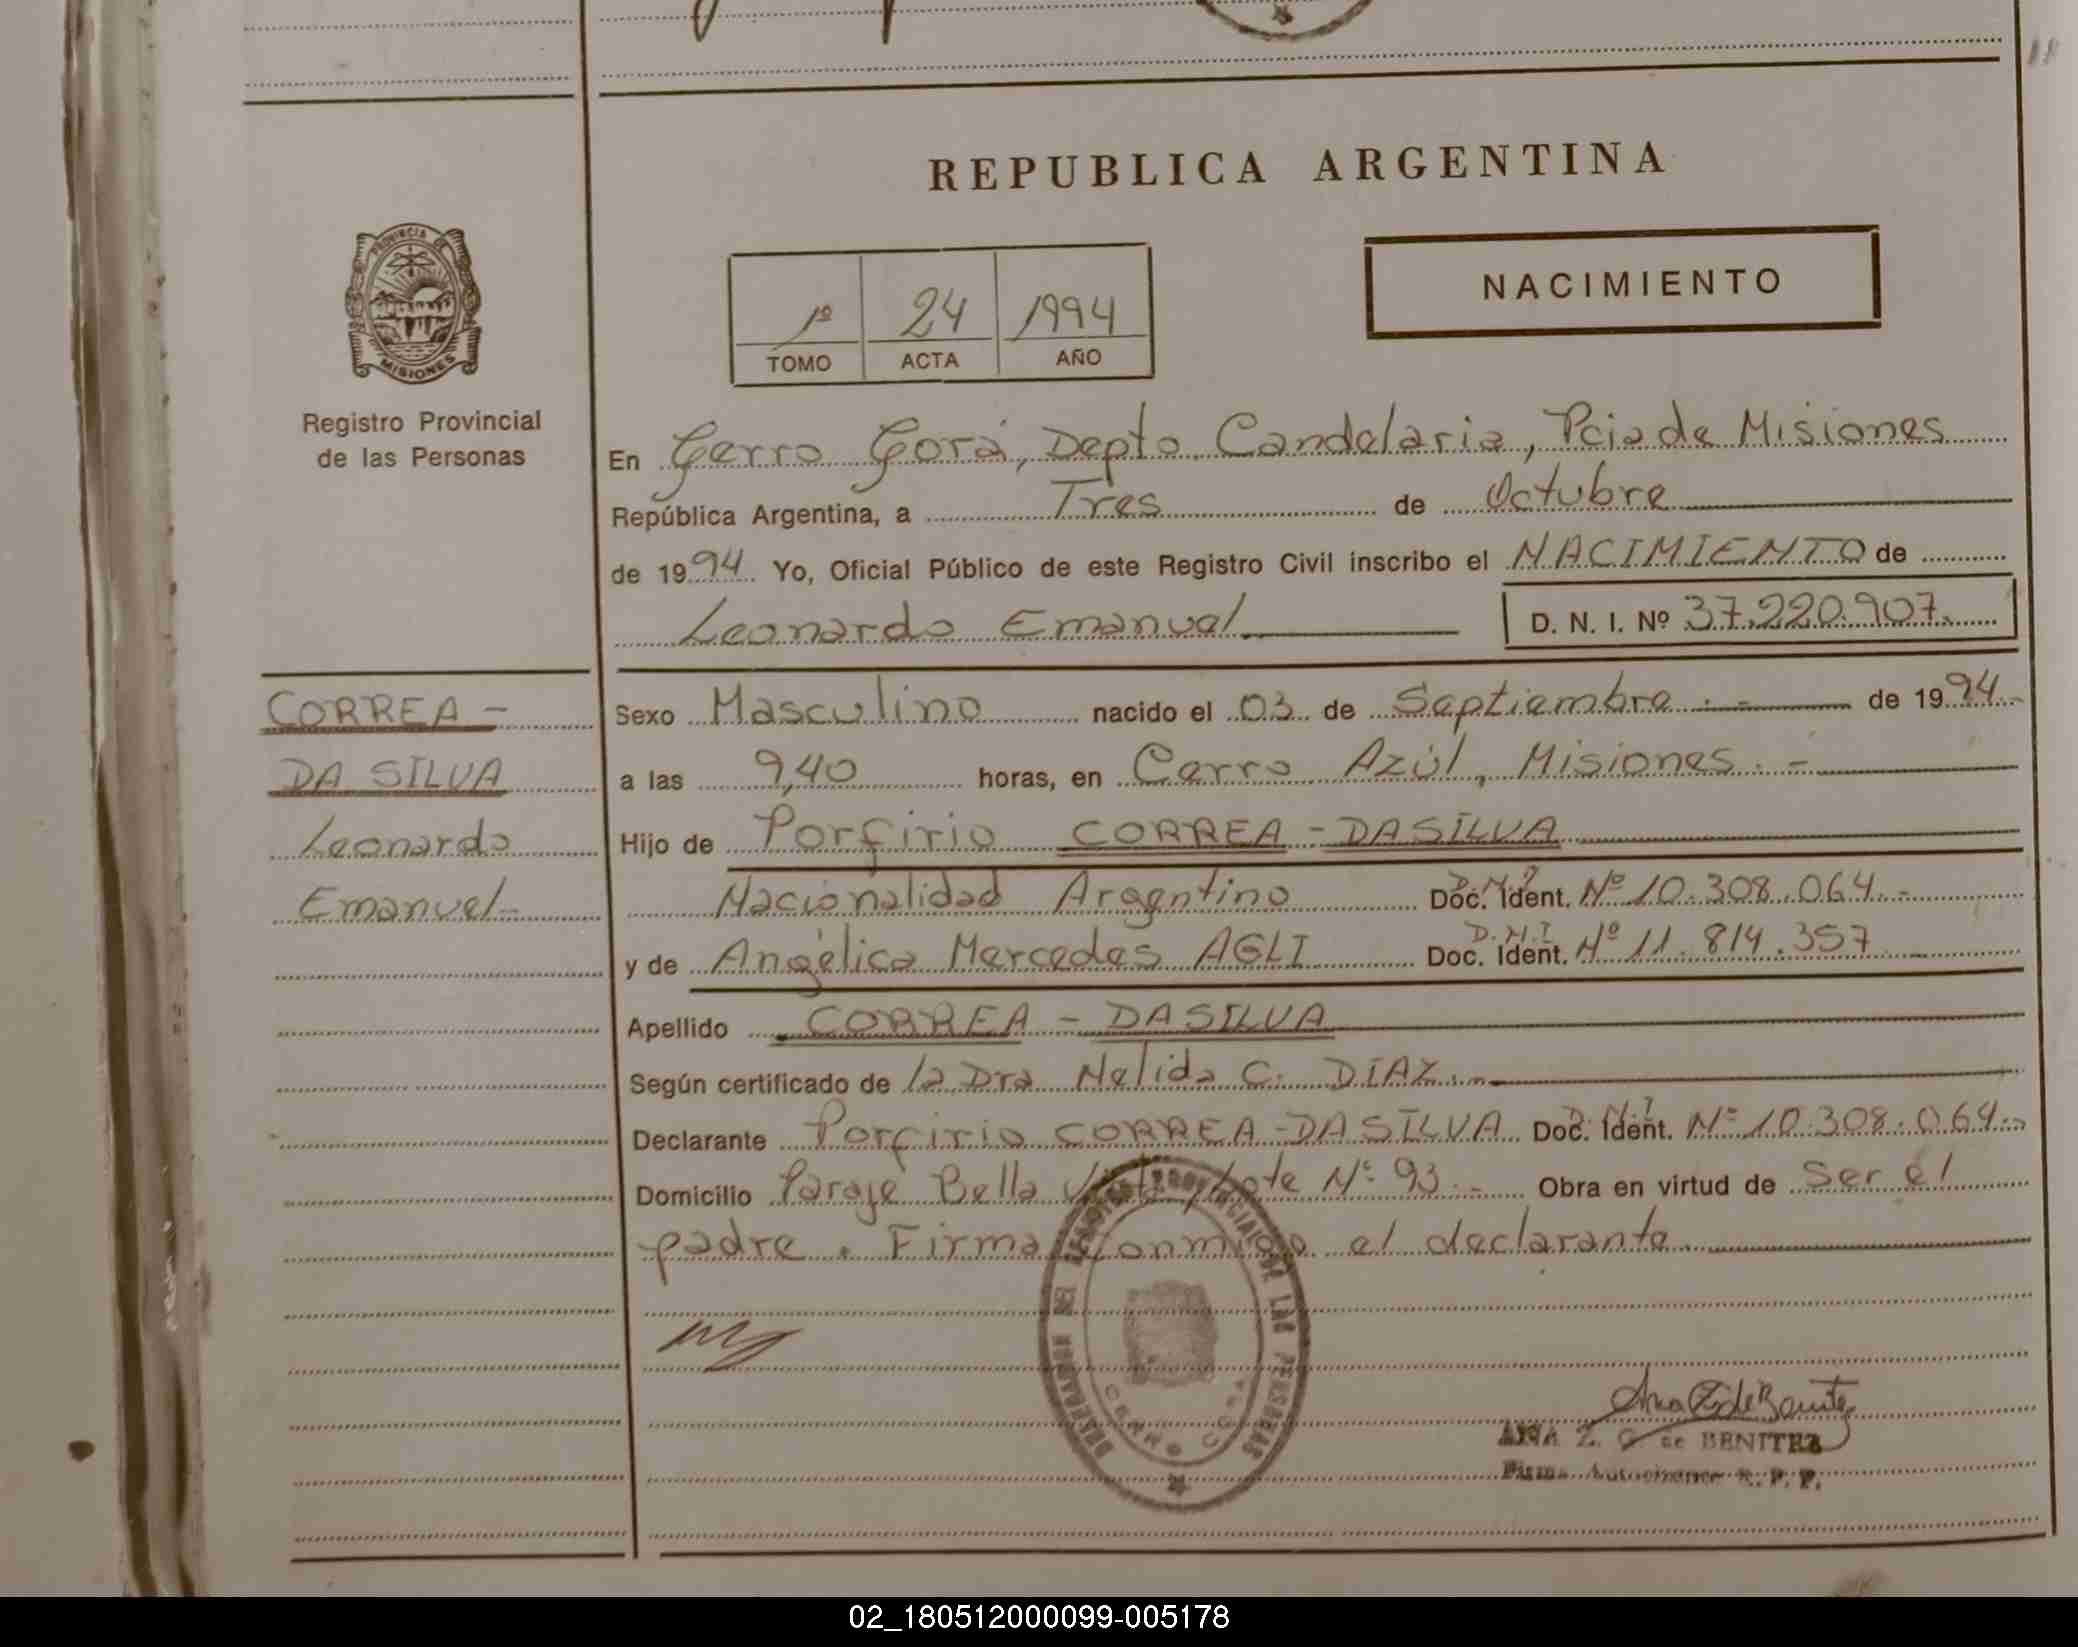 REPUBLICA ARGENTINA
NACIMIENTO
1º 24 1994
TOMO ACTA AÑO
PROVINCIA DE
MISIONES
Registro Provincial
de las Personas
En Cerro Corá, Depto. Candelaria, Pcia de Misiones
República Argentina, a Tres de Octubre
de 1994 Yo, Oficial Público de este Registro Civil inscribo el NACIMIENTO de
Leonardo Emanuel D. N. I. Nº 37.220.907.
CORREA -
DA SILVA
Leonardo
Emanuel-
Sexo Masculino nacido el 03 de Septiembre . - de 1994.-
a las 9,40 horas, en Cerro Azúl, Misiones. -
Hijo de Porfirio CORREA - DA SILVA
Nacionalidad Argentino D.N.I Doc. Ident. Nº 10.308.064.-
y de Angélica Mercedes AGLI D.N.I Doc. Ident. Nº 11.814.357
Apellido CORREA - DA SILVA
Según certificado de la Dra Nelida C. DIAZ.-
Declarante Porfirio CORREA-DA SILVA D.N.I Doc. Ident. Nº 10.308.064.-
Domicilio Paraje Bella Vista, Lote Nº 93.- Obra en virtud de Ser el
padre. Firma conmigo el declarante
DELEGACION DEL REGISTRO PROVINCIAL DE LAS PERSONAS
CERRO CORA
Ana Z. de Benitez
ANA Z. G. de BENITEZ
Firma R. P. P.
02_180512000099-005178